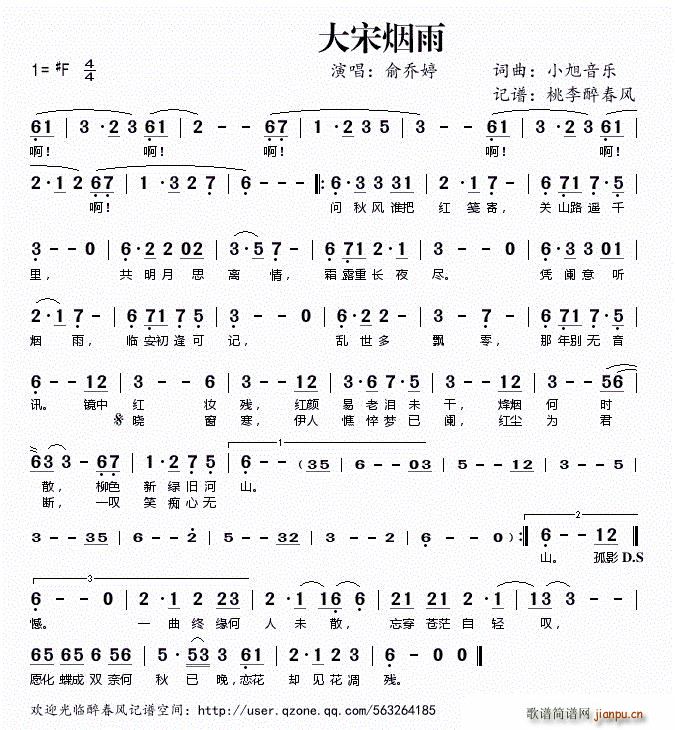 大宋烟雨
1=♯F 4/4 演唱：俞乔婷 词曲：小旭音乐
记谱：桃李醉春风
61 | 3 · 23 61 | 2 - - 67 | 1 · 2 3 5 | 3 - - 67 | 1 · 23 · 23 61 |
啊！ 啊！ 啊！ 啊！ 啊！
2 · 1 2 67 | 1 · 3 2 7 | 6 - - - |: 6 · 3 33 31 | 2 · 1 7 - | 6 71 7 · 5 |
啊！ 问 秋 风 谁把 红 笺 寄， 关 山路 遥 千
3 - - 0 | 6 · 2 2 02 | 3 · 5 7 - | 6 71 2 · 1 | 7 - - - | 6 · 3 3 01 |
里， 共 明 月 思 离 情， 霜 露重 长 夜 尽。 凭 阑 意 听
2 · 1 7 - | 6 71 7 · 5 | 3 - - 0 | 6 · 2 2 - | 3 - 7 - | 6 71 7 · 5 |
烟 雨， 临 安初 逢 可 记， 乱 世 多 飘 零， 那 年别 无 音
6 - - 12 | 3 - - 6 | 3 - - 12 | 3 · 6 7 · 5 | 3 - - 12 | 3 - - 56 |
讯。 镜中 红 妆 残， 红颜 易 老 泪 未 干， 烽烟 何 时
晓 窗 寒， 伊人 憔 悴 梦 已 阑， 红尘 为 君
63 3 - 67 | 1 · 2 7 5 | 6 - - (35 | 6 - - 03 | 5 - - 32 | 3 - - - |
散， 柳色 新 绿 旧 河 山。
断， 一叹 笑 痴 心 无
3 - - 35 | 6 - - 2 | 5 - - 32 | 3 - - 6 | 6 - - 0 ) :| 6 - - 12 ‖
山。 孤影 D.S
6 - - 0 | 2 · 1 2 23 | 2 · 1 16 6 | 21 21 2 · 1 | 1 3 - - | 3 - - - |
憾。 一 曲 终 缘何 人 未 散， 忘穿 苍茫 自 轻 叹，
65 65 6 56 | 5 · 53 3 61 | 2 · 1 2 7 | 6 - - 0 ‖
愿化 蝶成 双 奈何 秋 已 晚，恋花 却 见 花 凋 残。
欢迎光临醉春风记谱空间：http://user.qzone.qq.com/563264185
歌谱简谱网 jianpu.cn